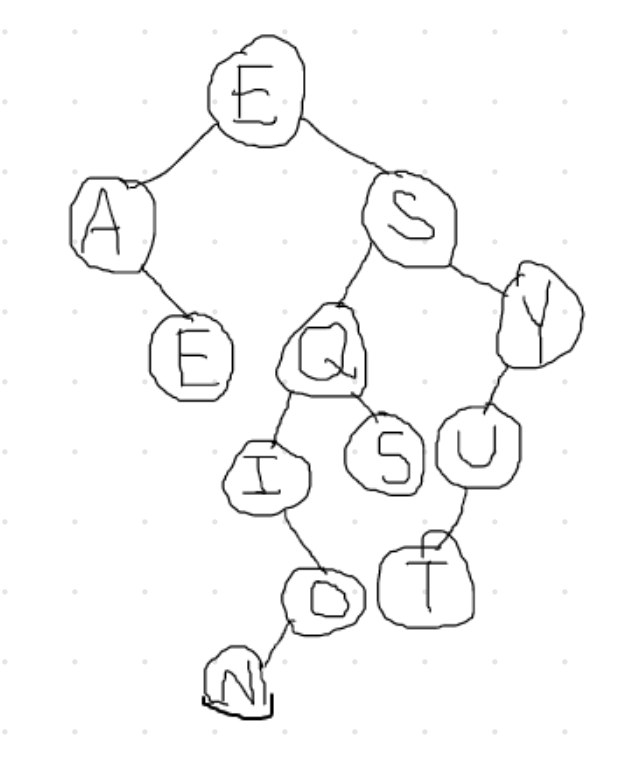 E
A
S
Y
E
Q
I
S
U
O
T
N